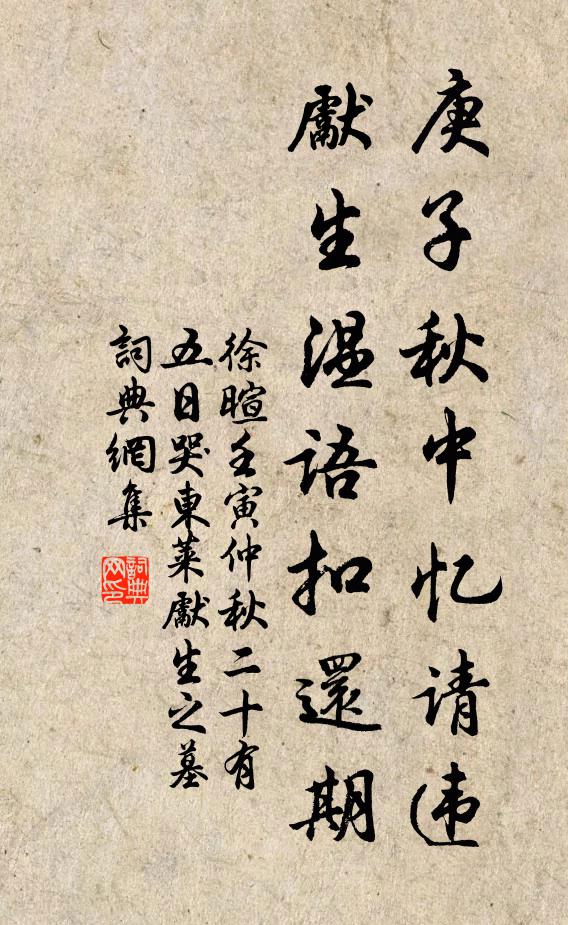 庚子秋中忆请违
獻生温语扣還期
徐暄壬寅仲秋二十有
五日哭東萊獻生之墓
詞典網集
詞典网印